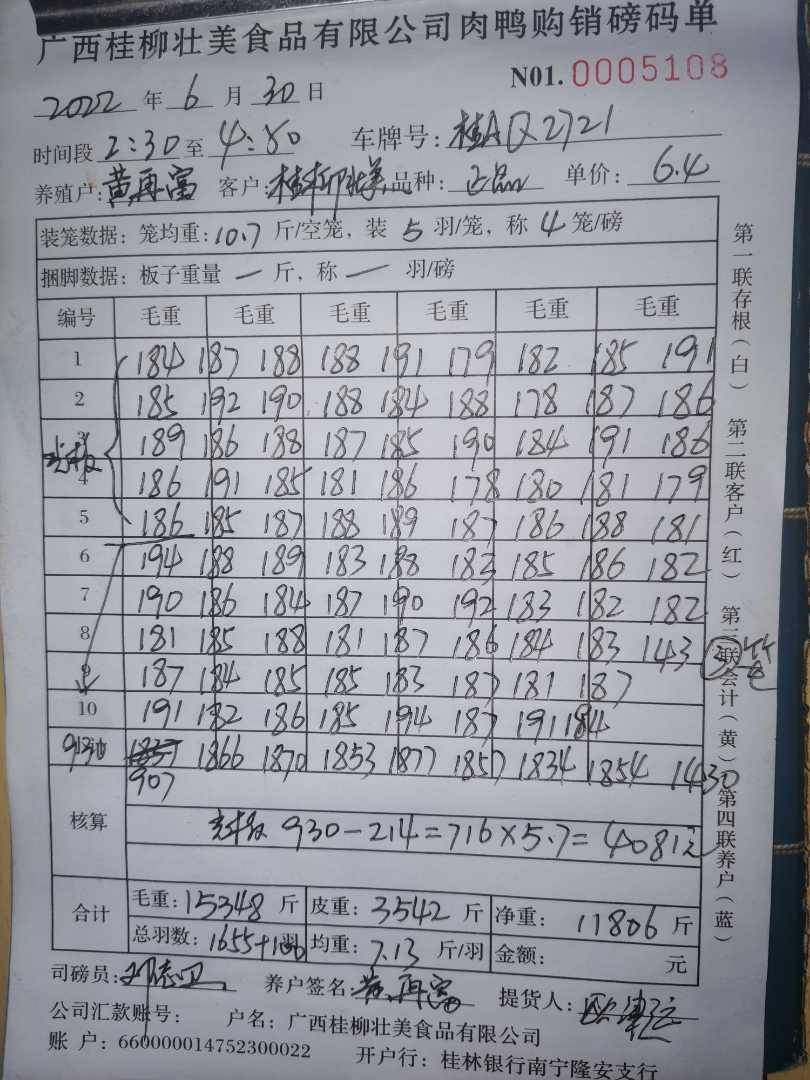 广西桂柳壮美食品有限公司肉鸭购销磅码单
N01. 0005108
2022 年 6 月 30 日
时间段 2:30 至 4:50 车牌号: 桂AQ2721
养殖户: 黄再富 客户: 桂柳壮美 品种: 正品 单价: 6.4
装笼数据: 笼均重: 10.7 斤/空笼, 装 5 羽/笼, 称 4 笼/磅
捆脚数据: 板子重量 一 斤, 称 一 羽/磅
编号 毛重 毛重 毛重 毛重 毛重 毛重
1 184 187 188 188 191 179 182 185 191
2 185 192 190 188 184 188 178 187 186
3 189 186 188 187 185 190 184 191 186
4 186 191 185 181 186 178 180 181 179
5 186 185 187 188 189 187 186 188 181
6 194 188 189 183 188 183 185 186 182
7 190 186 184 187 190 192 183 182 182
8 181 185 188 181 187 186 184 183 143 ③笼
9 187 184 185 185 183 187 181 187
10 191 182 186 185 194 187 191 184
930 1837 1866 1870 1853 1877 1857 1834 1854 1430
907
核算
930-214=716×5.7=4081元
合计 毛重: 15348 斤 皮重: 3542 斤 净重: 11806 斤
总羽数: 1655+100 羽 均重: 7.13 斤/羽 金额: 元
司磅员: 养户签名: 黄再富 提货人:
公司汇款账号: 户名: 广西桂柳壮美食品有限公司
账 户: 660000014752300022 开户行: 桂林银行南宁隆安支行
第一联存根(白) 第二联客户(红) 第三联会计(黄) 第四联养户(蓝)